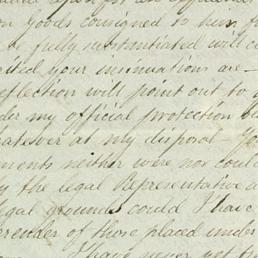 on goods consigned to him
be fully substantiated will
your insinuations are
reflection will point out to
my official protection
whatever at my disposal
neither were nor could
by the legal Representative
legal grounds could I have
of those placed under
I have never yet